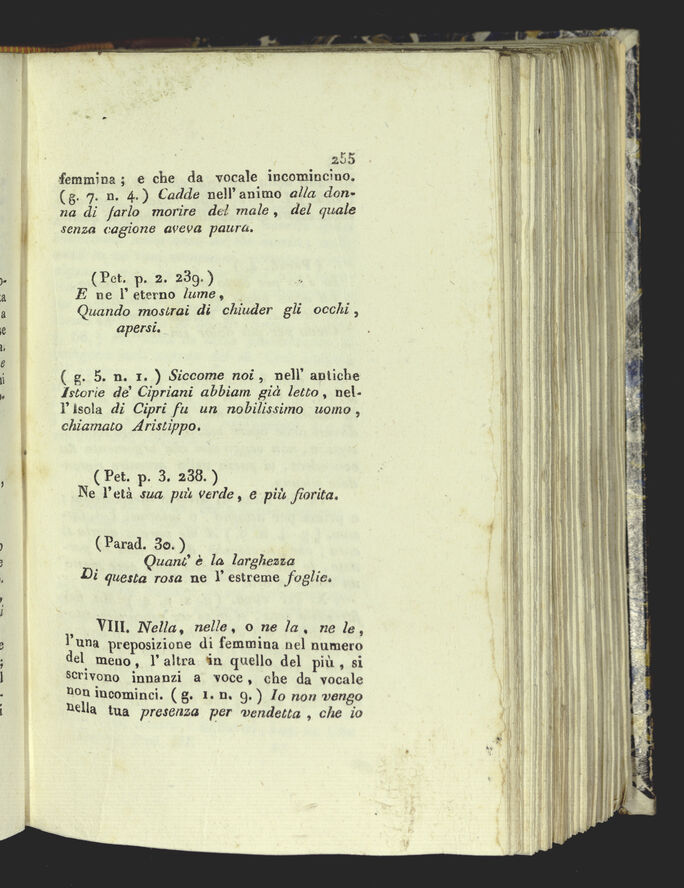 255
femmina ; e che da vocale incomincino.
(g. 7. n. 4.) Cadde nell' animo alla don-
na di farlo morire del male , del quale
senza cagione aveva paura.
(Pet. p. 2. 239.)
E ne l' eterno lume ,
Quando mostrai di chiuder gli occhi ,
apersi.
( g. 5. n. 1. ) Siccome noi , nell' antiche
Istorie de' Cipriani abbiam già letto , nel-
l' Isola di Cipri fu un nobilissimo uomo ,
chiamato Aristippo.
(Pet. p. 3. 238.)
Ne l'età sua più verde , e più fiorita.
(Parad. 30.)
Quant' è la larghezza
Di questa rosa ne l' estreme foglie.
VIII. Nella, nelle, o ne la, ne le,
l'una preposizione di femmina nel numero
del meno , l' altra in quello del più , si
scrivono innanzi a voce , che da vocale
non incominci. ( g. 1. n. 9. ) Io non vengo
nella tua presenza per vendetta , che io